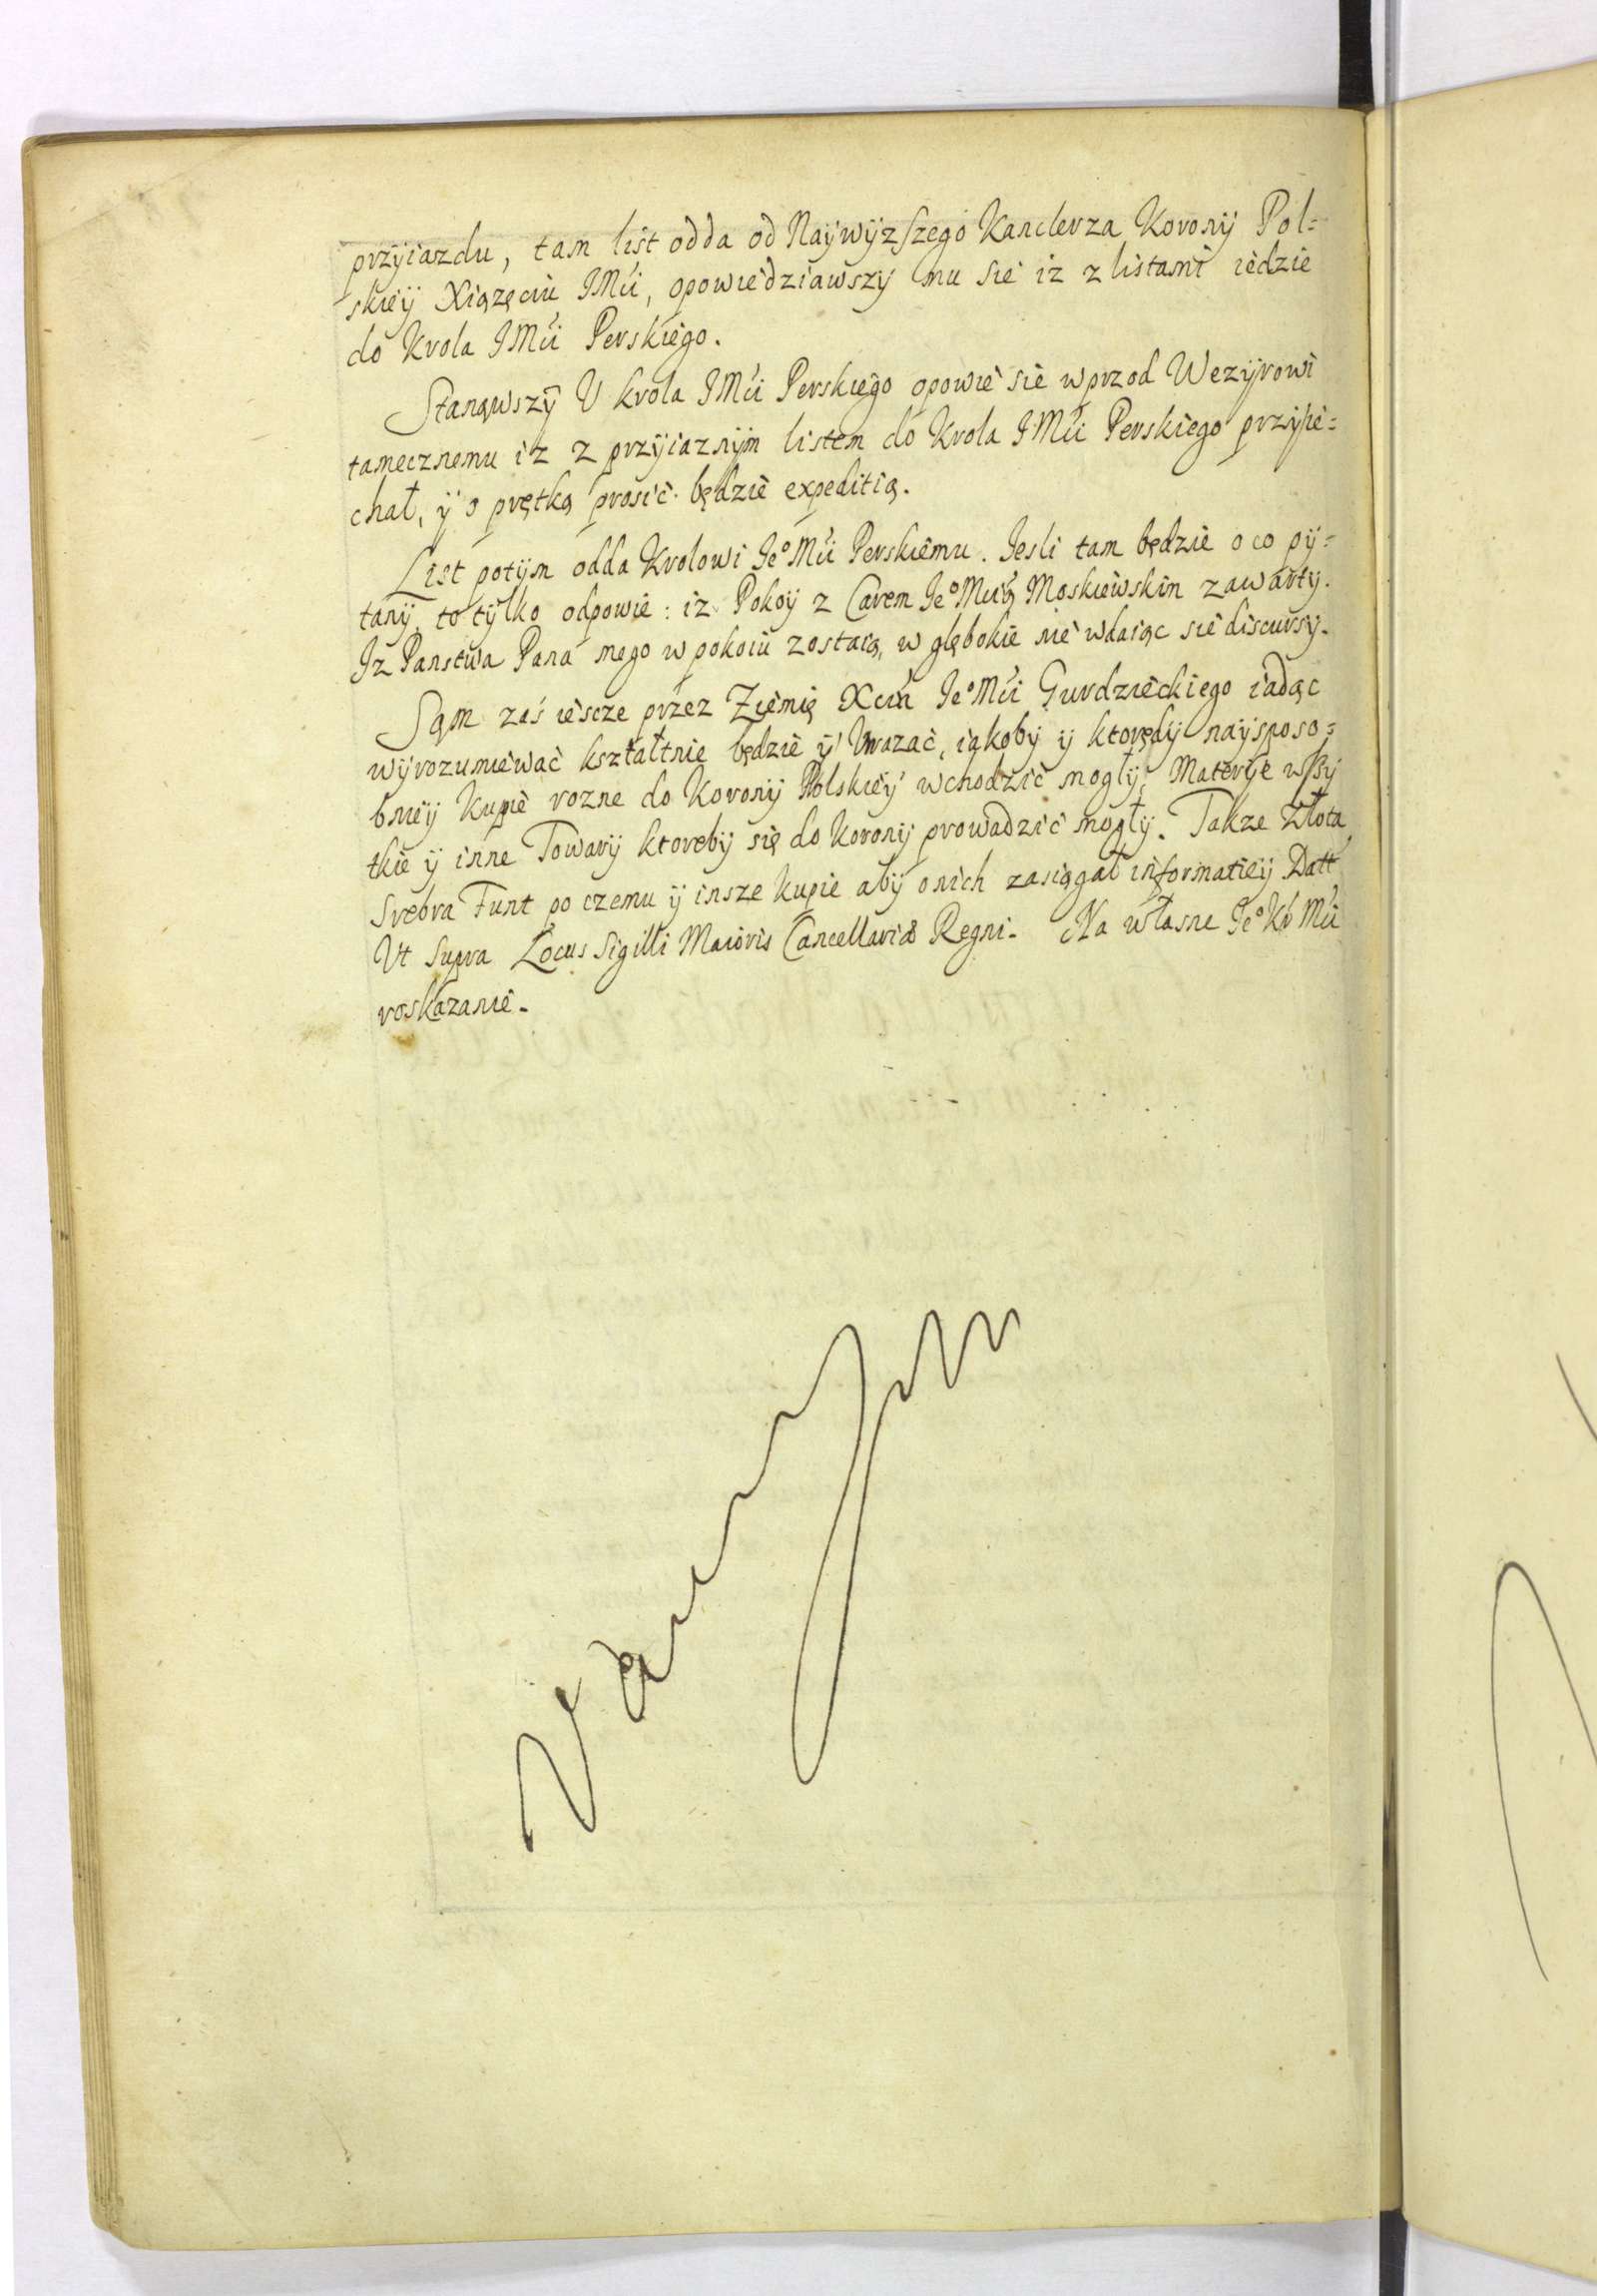 przyiazdu, tam list odda od Naywyzszego Kanclerza Korony Pol=
skiey Xiązęciu JMći, opowiedziawszy mu sie iz z listami iedzie
do Krola JMći Perskiego.
Stanąwszy U krola JMći Perskiego opowie sie wprzod Wezyrowi
tamecznemu iz z przyiaznym listem do Krola JMći Perskiego przyie=
chał, y o prętką prosić będzie expeditią.
List potym odda Krolowi Je° Mći Perskiemu. Jesli tam będzie o co py=
tany, to tylko odpowie: iz Pokoy z Carem Je° Mćią Moskiewskim zawarty.
Iz Panstwa Pana mego w pokoiu zostaią, w głębokie nie wdaiąc sie discursy.
Sąm zaś iescze przez Ziemię Xcia Je° Mći Gurdzieckiego iadąc
wyrozumiewać kształtnie będzie y Uwazać, iakoby y ktorędy naysposo=
bniey kupie rozne do Korony Polskiey wchodzić mogły, Materye wszy
tkie y inne Towary ktoreby się do korony prowadzić mogły. Takze Złota,
Srebra Funt po czemu y insze kupie aby o nich zasiągał informatiey Datt
Vt Supra Locus Sigilli Maioris Cancellariæ Regni. Na własne Je° Kr Mći
roskazanie.